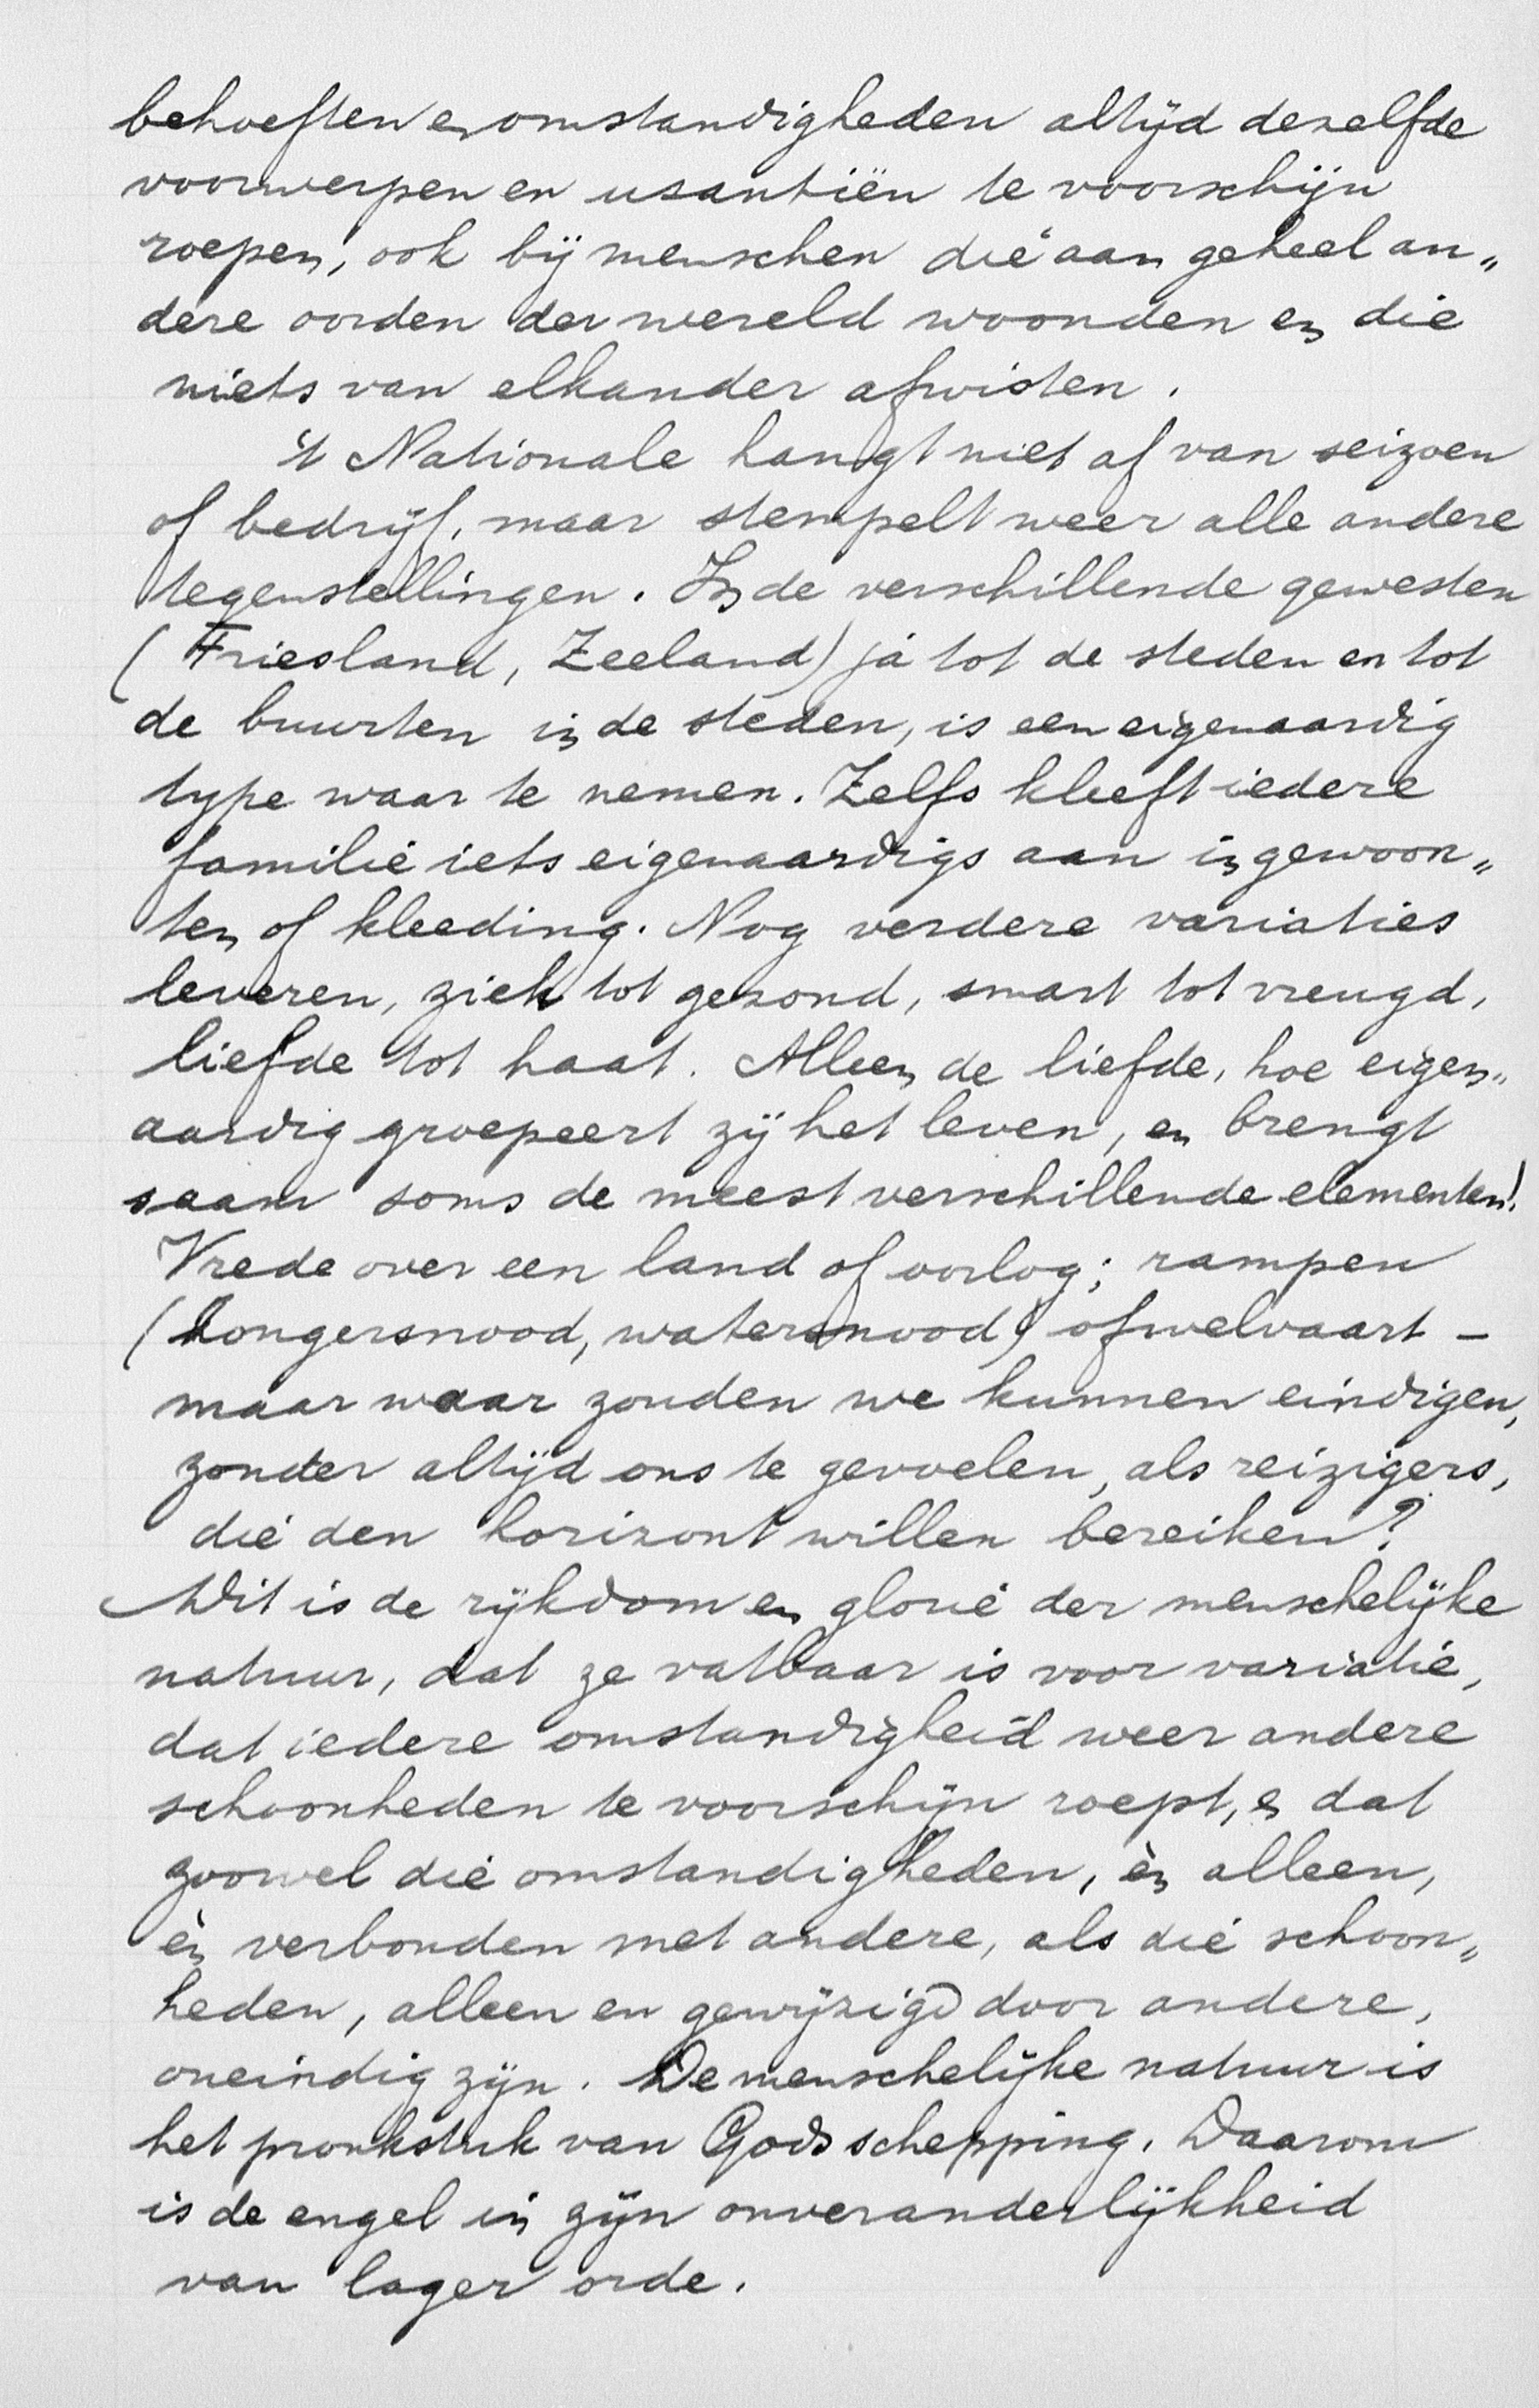 behoeften en omstandigheden altijd dezelfde
voorwerpen en usantiën te voorschijn
roepen, ook bij menschen die aan geheel an„
dere oorden der wereld woonden en die
niets van elkander afwisten.
't Nationale hangt niet af van seizoen
of bedrijf, maar stempelt weer alle andere
tegenstellingen. In de verschillende gewesten
(Friesland, Zeeland) ja tot de steden en tot
de buurten in de steden, is een eigenaardig
type waar te nemen. Zelfs kleeft iedere
familie iets eigenaardigs aan in gewoon„
ten of kleeding. Nog verdere variaties
leveren, ziek tot gezond, smart tot vreugd,
liefde tot haat. Alleen de liefde, hoe eigen„
aardig groepeert zij het leven, en brengt
saam soms de meest verschillende elementen!
Vrede over een land of oorlog; rampen
(hongersnood, watersnood) of welvaart –
maar waar zouden we kunnen eindigen,
zonder altijd ons te gevoelen, als reizigers,
die den horizont willen bereiken?
Dit is de rijkdom en glorie der menschelijke
natuur, dat ze vatbaar is voor variatie,
dat iedere omstandigheid weer andere
schoonheden te voorschijn roept, en dat
zoowel die omstandigheden, èn alleen,
èn verbonden met andere, als die schoon„
heden, alleen en gewijzigd door andere,
oneindig zijn. De menschelijke natuur is
het pronkstuk van Gods schepping. Daarom
is de engel in zijn onveranderlijkheid
van lager orde.